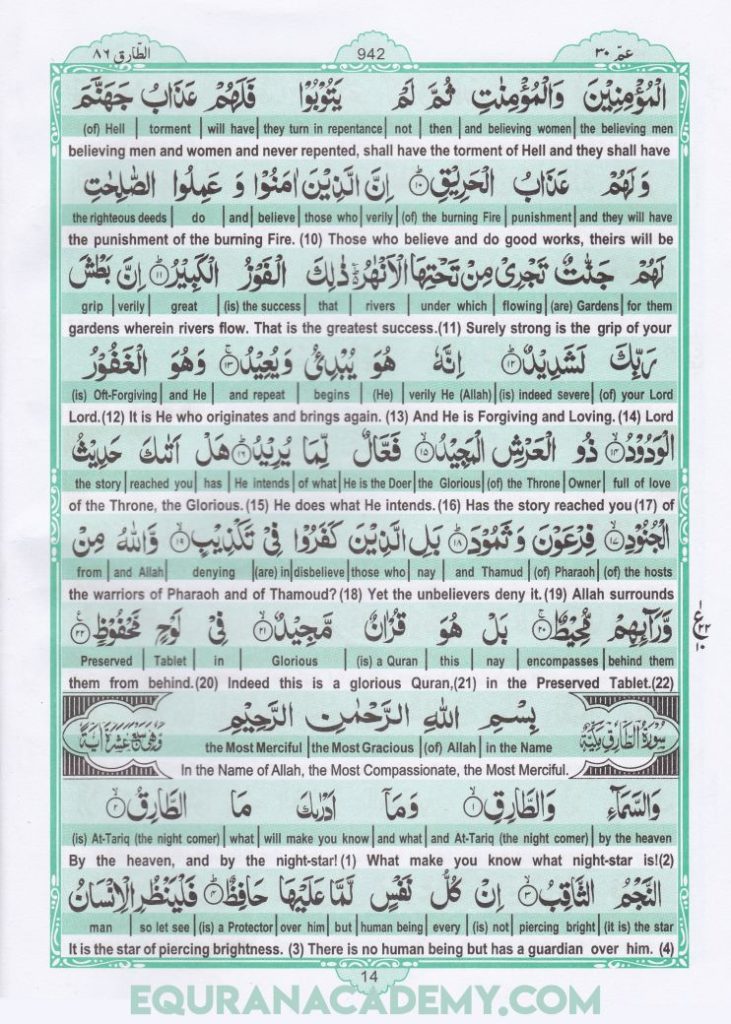 الطّارق ٨٦
942
عمّ ٣٠
الْمُؤْمِنِيْنَ وَالْمُؤْمِنٰتِ ثُمَّ لَمْ يَتُوْبُوْا فَلَهُمْ عَذَابُ جَهَنَّمَ
(of) Hell | torment | will have | they turn in repentance | not | then | and believing women | the believing men
believing men and women and never repented, shall have the torment of Hell and they shall have
وَلَهُمْ عَذَابُ الْحَرِيْقِ ﴿١٠﴾ اِنَّ الَّذِيْنَ اٰمَنُوْا وَ عَمِلُوا الصّٰلِحٰتِ
the righteous deeds | do | and | believe | those who | verily | (of) the burning Fire | punishment | and they will have
the punishment of the burning Fire. (10) Those who believe and do good works, theirs will be
لَهُمْ جَنّٰتٌ تَجْرِىْ مِنْ تَحْتِهَا الْاَنْهٰرُ ذٰلِكَ الْفَوْزُ الْكَبِيْرُ ﴿١١﴾ اِنَّ بَطْشَ
grip | verily | great | (is) the success | that | rivers | under which | flowing | (are) Gardens | for them
gardens wherein rivers flow. That is the greatest success.(11) Surely strong is the grip of your
رَبِّكَ لَشَدِيْدٌ ﴿١٢﴾ اِنَّهٗ هُوَ يُبْدِئُ وَيُعِيْدُ ﴿١٣﴾ وَهُوَ الْغَفُوْرُ
(is) Oft-Forgiving | and He | and repeat | begins | (He) | verily He (Allah) | (is) indeed severe | (of) your Lord
Lord.(12) It is He who originates and brings again. (13) And He is Forgiving and Loving. (14) Lord
الْوَدُوْدُ ﴿١٤﴾ ذُو الْعَرْشِ الْمَجِيْدُ ﴿١٥﴾ فَعَّالٌ لِّمَا يُرِيْدُ ﴿١٦﴾ هَلْ اَتٰىكَ حَدِيْثُ
the story | reached you | has | He intends | of what | He is the Doer | the Glorious | (of) the Throne | Owner | full of love
of the Throne, the Glorious. (15) He does what He intends. (16) Has the story reached you (17) of
الْجُنُوْدِ ﴿١٧﴾ فِرْعَوْنَ وَ ثَمُوْدَ ﴿١٨﴾ بَلِ الَّذِيْنَ كَفَرُوْا فِىْ تَكْذِيْبٍ ﴿١٩﴾ وَّاللّٰهُ مِنْ
from | and Allah | denying | (are) in | disbelieve | those who | nay | and Thamud | (of) Pharaoh | (of) the hosts
the warriors of Pharaoh and of Thamoud? (18) Yet the unbelievers deny it. (19) Allah surrounds
وَّرَآئِهِمْ مُّحِيْطٌ ﴿٢٠﴾ بَلْ هُوَ قُرْاٰنٌ مَّجِيْدٌ ﴿٢١﴾ فِىْ لَوْحٍ مَّحْفُوْظٍ ﴿٢٢﴾
ع ٢٢ ١٠
Preserved | Tablet | in | Glorious | (is) a Quran | this | nay | encompasses | behind them
them from behind.(20) Indeed this is a glorious Quran,(21) in the Preserved Tablet.(22)
سُوْرَةُ الطَّارِقِ مَكِّيَّةٌ
بِسْمِ اللّٰهِ الرَّحْمٰنِ الرَّحِيْمِ
وَهِىَ سَبْعَ عَشْرَةَ اٰيَةً
the Most Merciful | the Most Gracious | (of) Allah | in the Name
In the Name of Allah, the Most Compassionate, the Most Merciful.
وَالسَّمَآءِ وَالطَّارِقِ ﴿١﴾ وَمَآ اَدْرٰىكَ مَا الطَّارِقُ ﴿٢﴾
(is) At-Tariq (the night comer) | what | will make you know | and what | and At-Tariq (the night comer) | by the heaven
By the heaven, and by the night-star! (1) What make you know what night-star is!(2)
النَّجْمُ الثَّاقِبُ ﴿٣﴾ اِنْ كُلُّ نَفْسٍ لَّمَّا عَلَيْهَا حَافِظٌ ﴿٤﴾ فَلْيَنْظُرِ الْاِنْسَانُ
man | so let see | (is) a Protector | over him | but | human being | every | (is) not | piercing bright | (it is) the star
It is the star of piercing brightness. (3) There is no human being but has a guardian over him. (4)
14
EQURANACADEMY.COM